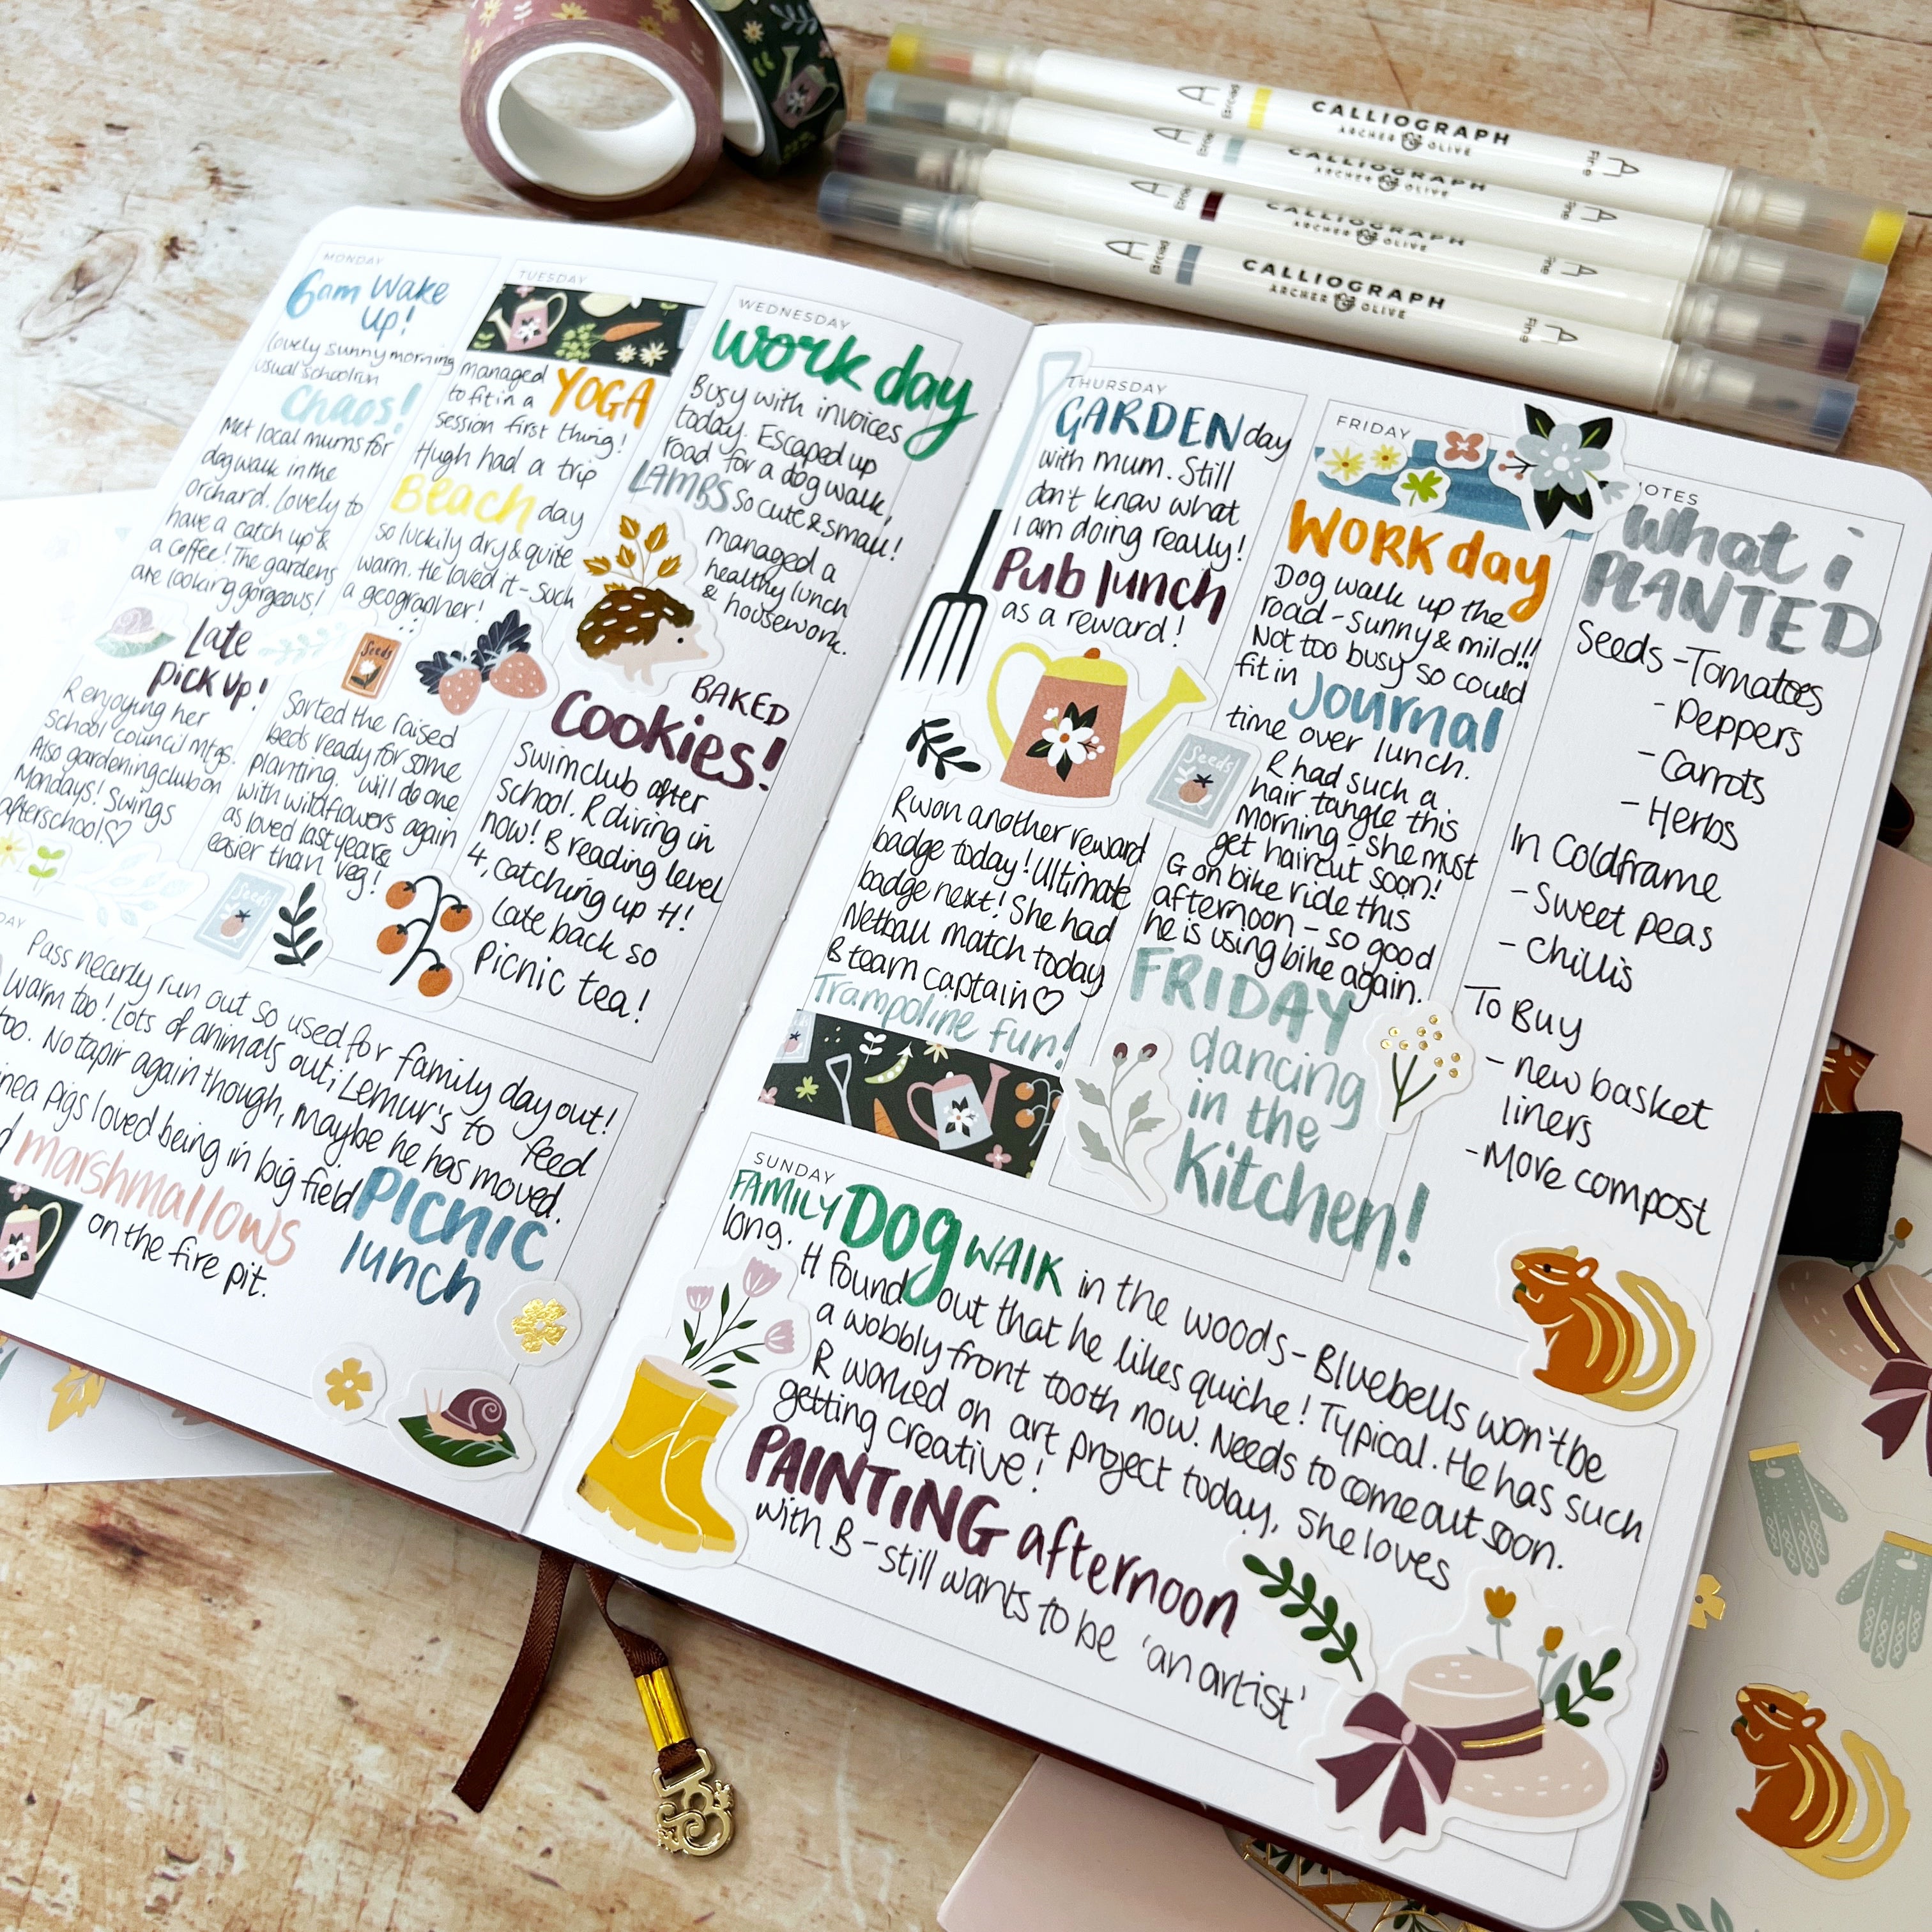 CALLIOGRAPH
ARCHER & OLIVE
Broad
Fine
CALLIOGRAPH
ARCHER & OLIVE
Broad
Fine
CALLIOGRAPH
ARCHER & OLIVE
Broad
Fine
CALLIOGRAPH
ARCHER & OLIVE
Broad
Fine
MONDAY
6am Wake
up!
Lovely sunny morning
usual schoolrun
Chaos!
Met local mums for
dogwalk in the
orchard. Lovely to
have a catch up &
a coffee! The gardens
are looking gorgeous!
Late
Pick up!
R enjoying her
School council mtgs.
Also gardening club on
Mondays! Swings
afterschool♡
TUESDAY
managed
to fit in a YOGA
session first thing!
Hugh had a trip
Beach day
so luckily dry & quite
warm. He loved it - Such
a geographer!
Seeds
Sorted the raised
beds ready for some
planting. Will do one
with wildflowers again
as loved last year &
easier than veg!
Seeds
WEDNESDAY
Work day
Busy with invoices
today. Escaped up
road for a dog walk,
LAMBS so cute & small!
managed a
healthy lunch
& housework.
BAKED
Cookies!
Swimclub after
school. R diving in
now! B reading level
4, catching up H!
Late back so
Picnic tea!
DAY
Pass nearly run out so used for family day out!
Warm too! Lots of animals out; Lemur's to feed
too. No tapir again though, maybe he has moved.
inea pigs loved being in big field PICNIC
lunch
d marshmallows
on the fire pit.
THURSDAY
GARDEN day
with mum. Still
don't know what
I am doing really!
Pub lunch
as a reward!
R won another reward
badge today! Ultimate
badge next! She had
Netball match today
B team captain♡
Trampoline fun!
FRIDAY
WORK day
Dog walk up the
road - sunny & mild!!
Not too busy so could
fit in Journal
time over lunch.
Seeds
R had such a
hair tangle this
morning - she must
get haircut soon!
G on bike ride this
afternoon - so good
he is using bike again.
FRIDAY
dancing
in the
Kitchen!
NOTES
What i
PLANTED
Seeds - Tomatoes
- Peppers
- Carrots
- Herbs
In Coldframe
- Sweet peas
- Chilli's
To Buy
- new basket
liners
- More compost
SUNDAY
FAMILY Dog WALK in the woods - Bluebells won't be
long. H found out that he likes quiche! Typical. He has such
a wobbly front tooth now. Needs to come out soon.
R worked on art project today, she loves
getting creative!
PAINTING afternoon
with B - still wants to be 'an artist'